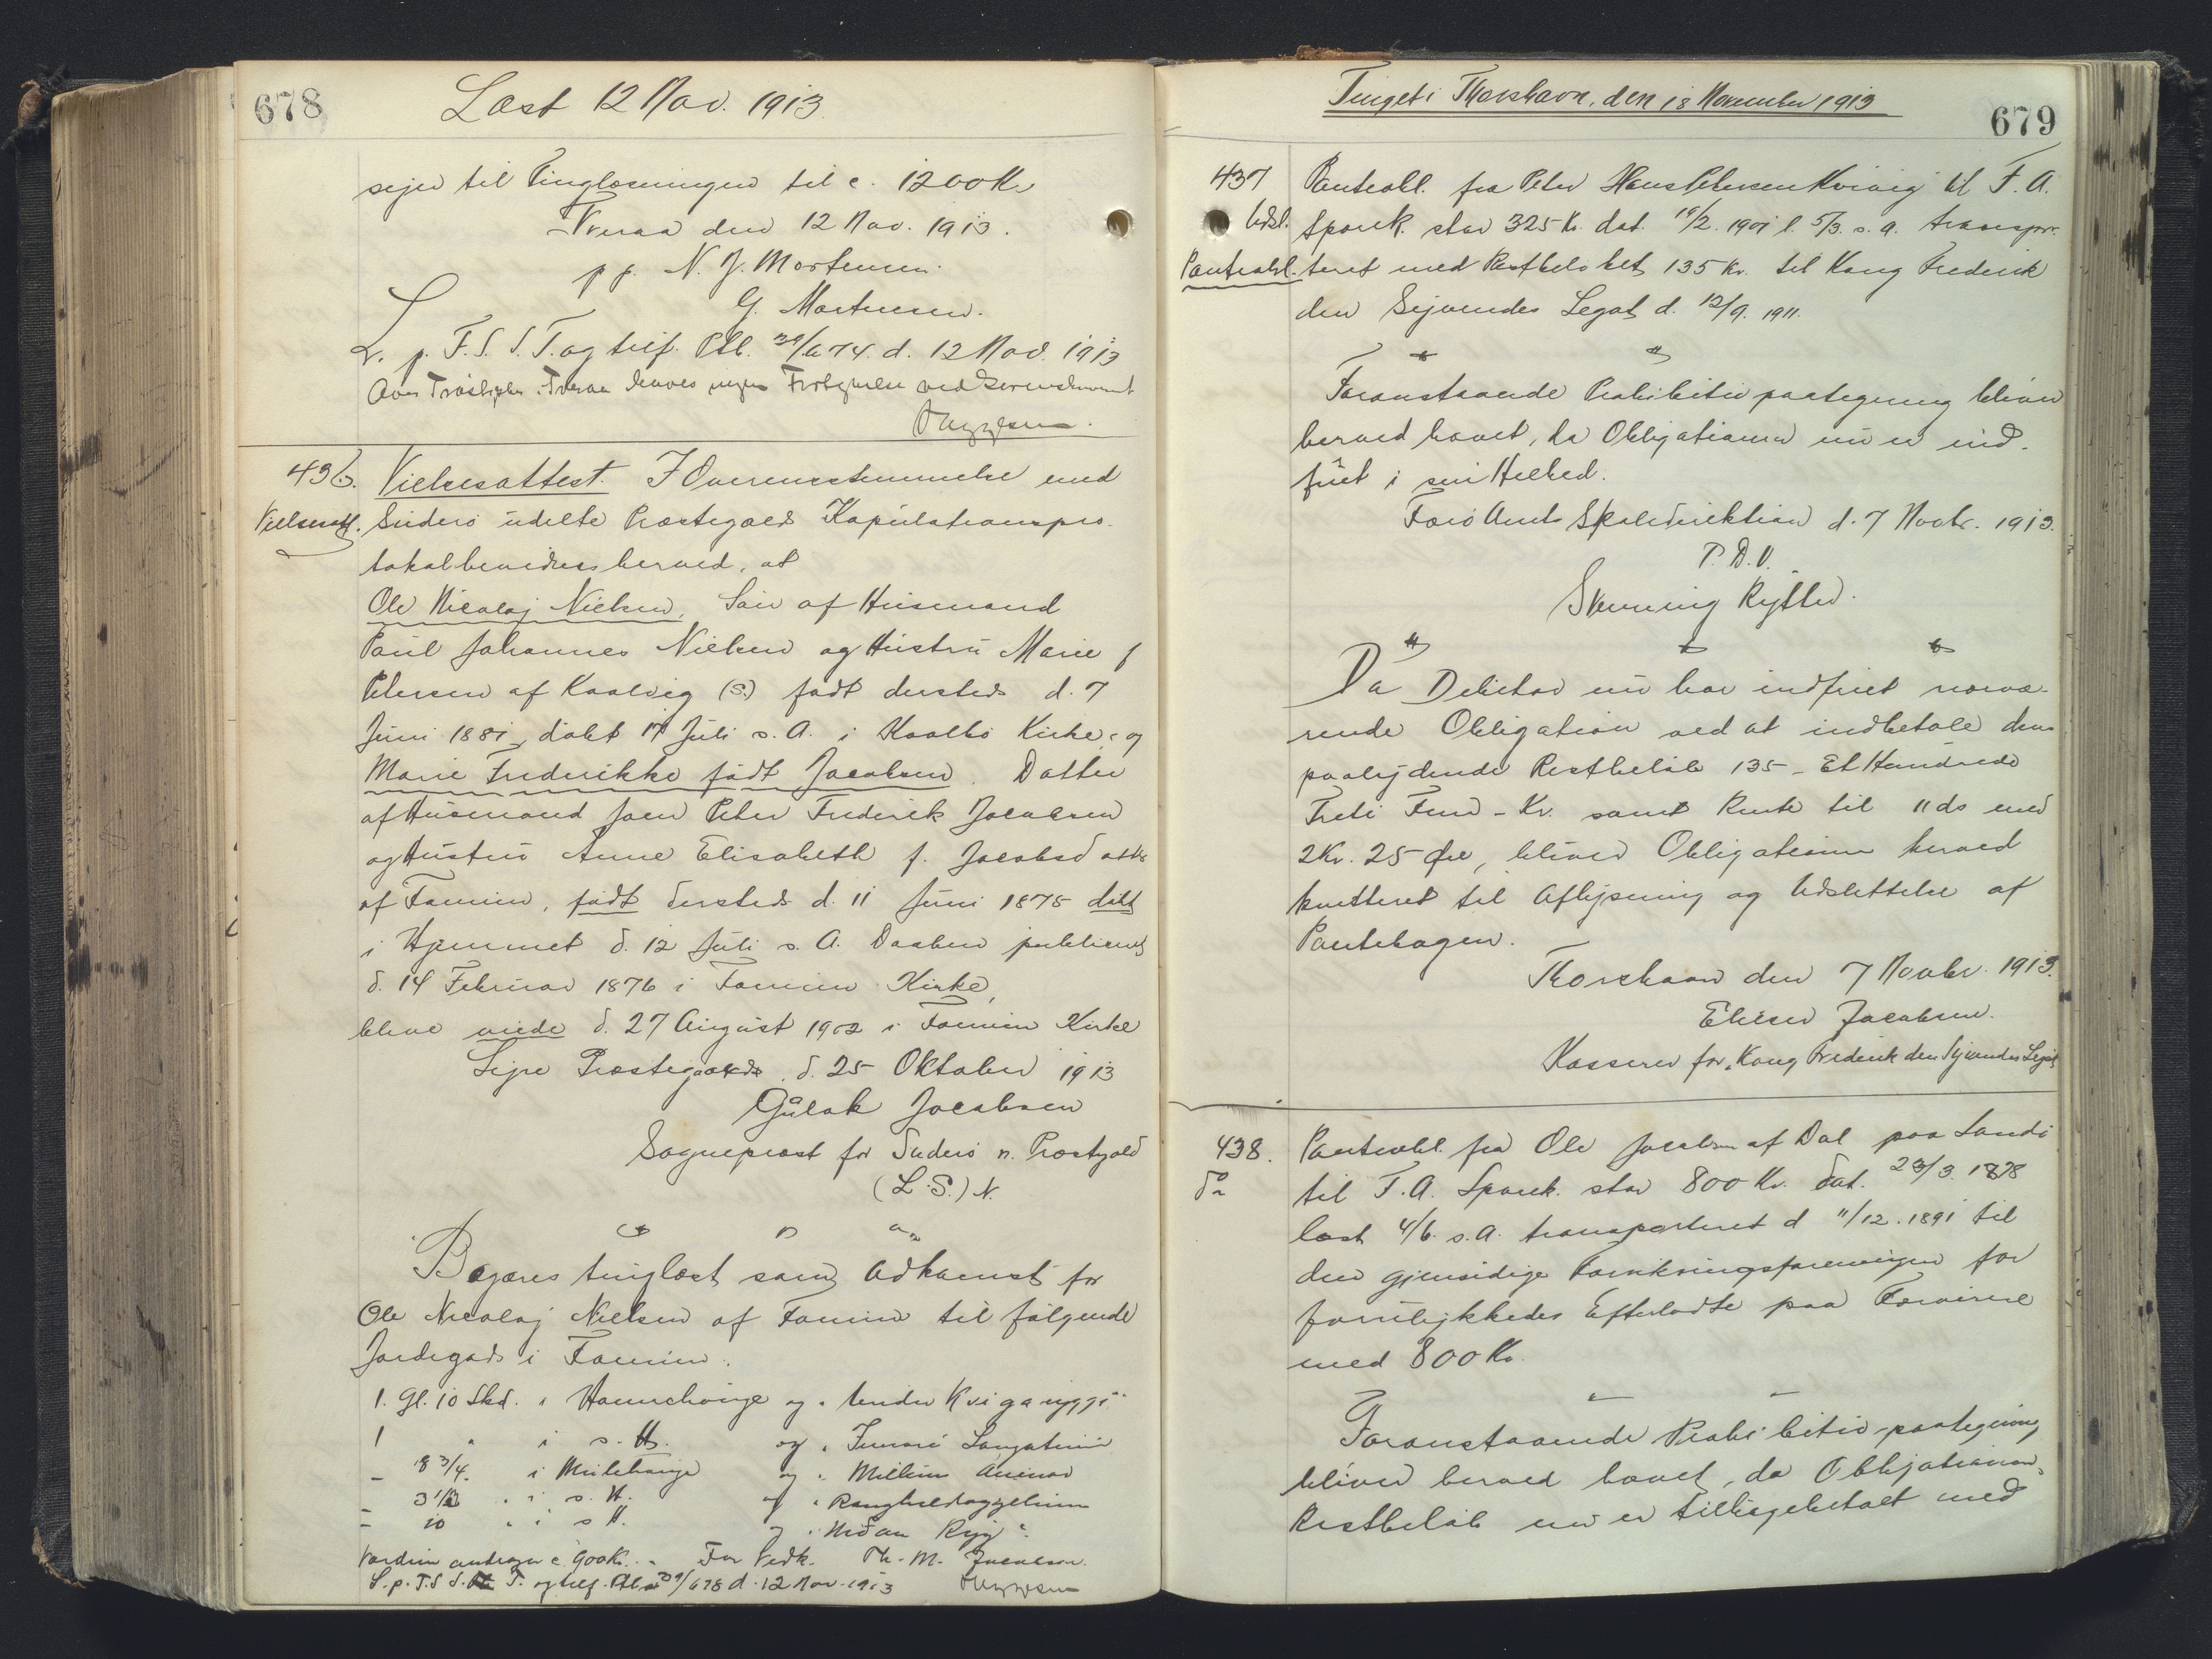 678
Læst 12 Nov. 1913.
sejer til Tinglæsningen til c. 1200 Kr
Tveraa den 12 Nov. 1913.
p. p. N. J. Mortensen.
G. Mortensen.
L. p. F. S. S. T. og tilf. Ptb. 39/674. d. 12 Nov. 1913
436. Vielsesattest. I Overensstemmelse med
Vielsesatt. Suderø udelte Præstegælds Kopulationspro-
tokol bevidnes herved, at
Ole Nicolaj Nielsen, Søn af Husmand
Poul Johannes Nielsen og Hustru Marie f
Petersen af Kvalvig (S.) født dersteds d. 7
Juni 1881, døbt 17 Juli s. A. i Hvalbø Kirke, og
Marie Frederikke født Jacobsen. Datter
af Husmand Joen Peter Frederik Jacobsen
og Hustru Anne Elisabeth f. Jacobsdatter
af Famien, født dersteds d. 11 Juni 1875 døbt
i Hjemmet d. 12 Juli s. A. Daaben publiceret
d. 14 Februar 1876 i Famien Kirke,
bleve viede d. 27 August 1902 i Famien Kirke
Sejre Præstegaard, d. 25 Oktober 1913
Jacobsen
Sognepræst for Suderø n. Præstgæld
(L. S.) N.
Begæres tinglæst som Adkomst for
Ole Nicolaj Nielsen af Famien til følgende
Jordegods i Famien.
1. Gl. 10 Skd. i Hamrehauge og i
1 " i s. H. og i
- 8 3/4 " i og i
- 3 " i s. H. og i
- 10 " i s H. og i
Værdien andrager c. 900 Kr. For Vedk. M. Jacobsen.
L. p. F. S S. T. og tilf. Ptb. 39/678 d. 12 Nov. 1913
Tinget i Thorshavn, den 18 November 1913
679
437 Panteobl. fra Peter Hans Petersen Kvivig til F. A.
Udsl. Sponk. stor 325 Kr. dat. 19/2. 1901 l. 5/3. s. a. transpor-
Panteobl. teret med Restbeløbet 135 Kr. til Kong Frederik
den Syvendes Legat d. 12/9. 1911.
Foranstaaende Prohibitivpaategning bliver
herved hævet, da Obligationen nu er ind-
friet i sin Helhed.
Færø Amts Skoledirektion d. 7 Novbr. 1913.
P. D. V.
Svenning Rytter.
Da Debitor nu har indfriet nærvæ-
rende Obligation ved at indbetale dens
paalydende Restbeløb 135 - Et Hundrede
Treti Fem - Kr. samt Rente til 11 ds med
2 Kr. 25 Øre, bliver Obligationen herved
kvitteret til Aflysning og Udslettelse af
Pantebogen.
Thorshavn den 7 Novbr. 1913.
Elieser Jacobsen.
Kasserer for "Kong Frederik den Syvendes Legat
438. Panteobl. fra Ole Jacobsen af Dal paa Sandø
do til F. A. Sponk. stor 800 Kr. dat. 23/3. 1878
læst 4/6. s. a. transporteret d 11/12. 1891 til
den gjensidige Forsikringsforeningen for
forulykkedes Efterladte paa Færøerne
med 800 Kr.
Foranstaaende Prohibitiv-paategning
bliver herved hævet, da Obligationens
Restbeløb nu er tilbagebetalt med